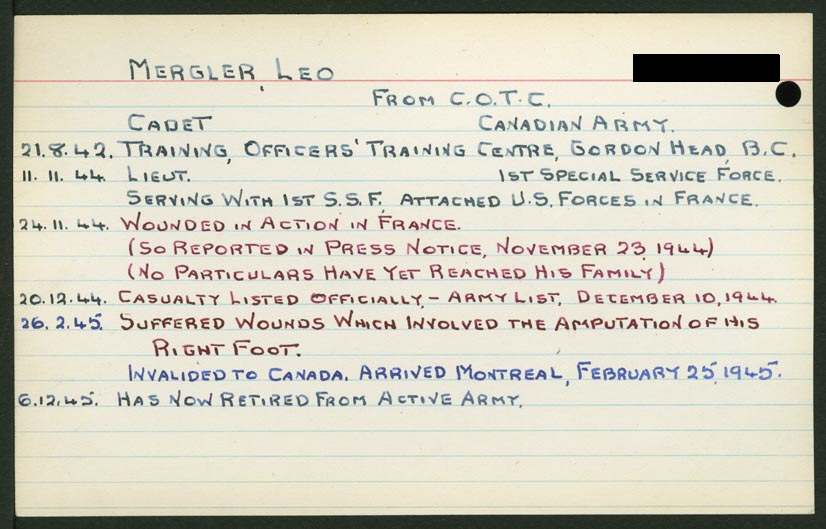 MERGLER, LEO
FROM C.O.T.C.
CADET CANADIAN ARMY.
21.8.42. TRAINING, OFFICERS' TRAINING CENTRE, GORDON HEAD, B.C.
11.11.44. LIEUT. 1ST SPECIAL SERVICE FORCE.
SERVING WITH 1ST S.S.F. ATTACHED U.S. FORCES IN FRANCE.
24.11.44. WOUNDED IN ACTION IN FRANCE.
(SO REPORTED IN PRESS NOTICE, NOVEMBER 23, 1944)
(NO PARTICULARS HAVE YET REACHED HIS FAMILY)
20.12.44. CASUALTY LISTED OFFICIALLY, - ARMY LIST, DECEMBER 10, 1944.
26.2.45. SUFFERED WOUNDS WHICH INVOLVED THE AMPUTATION OF HIS
RIGHT FOOT.
INVALIDED TO CANADA. ARRIVED MONTREAL, FEBRUARY 25, 1945.
6.12.45. HAS NOW RETIRED FROM ACTIVE ARMY.